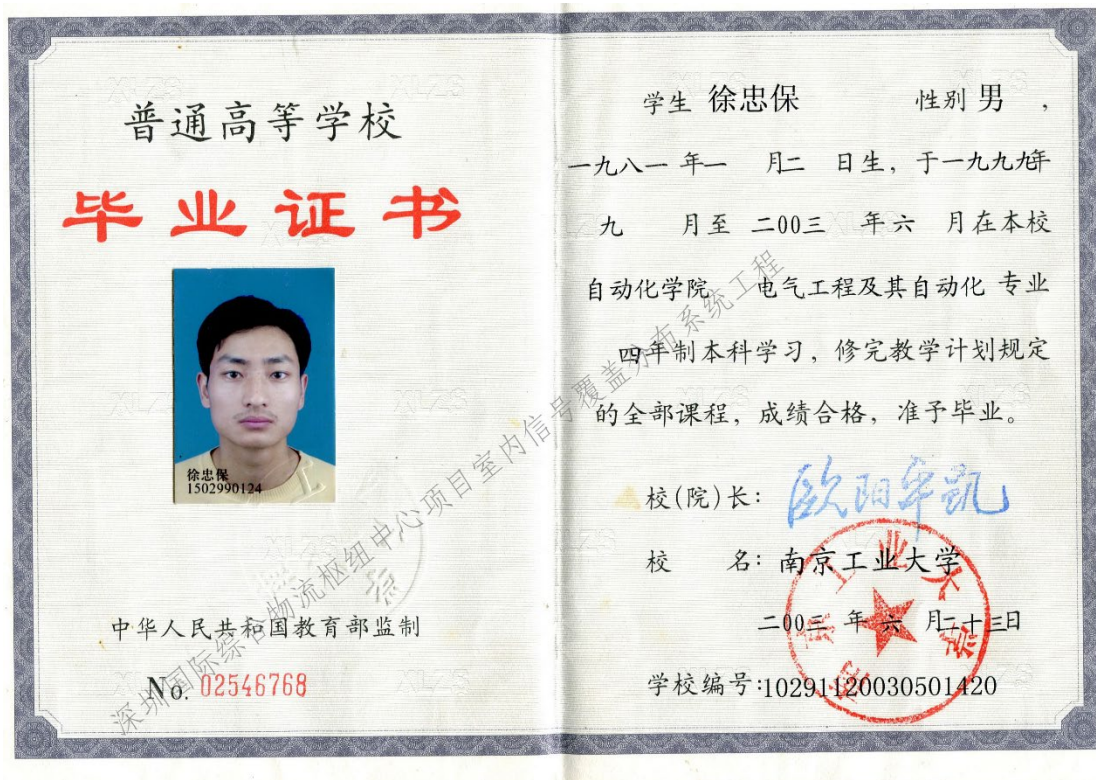 普通高等学校
毕业证书
徐忠保
1502990124
中华人民共和国教育部监制
No. 02546768
学生 徐忠保 性别 男 ,
一九八一 年一 月二 日生，于一九九九年
九 月至 二00三 年六 月在本校
自动化学院 电气工程及其自动化 专业
四年制本科学习，修完教学计划规定
的全部课程，成绩合格，准予毕业。
校(院)长： 欧阳平凯
校 名：南京工业大学
二00三 年 六 月二十三日
学校编号:10291120030501420
南京工业大学
深圳国际综合物流枢纽中心项目室内信号覆盖分布系统工程
XLZS